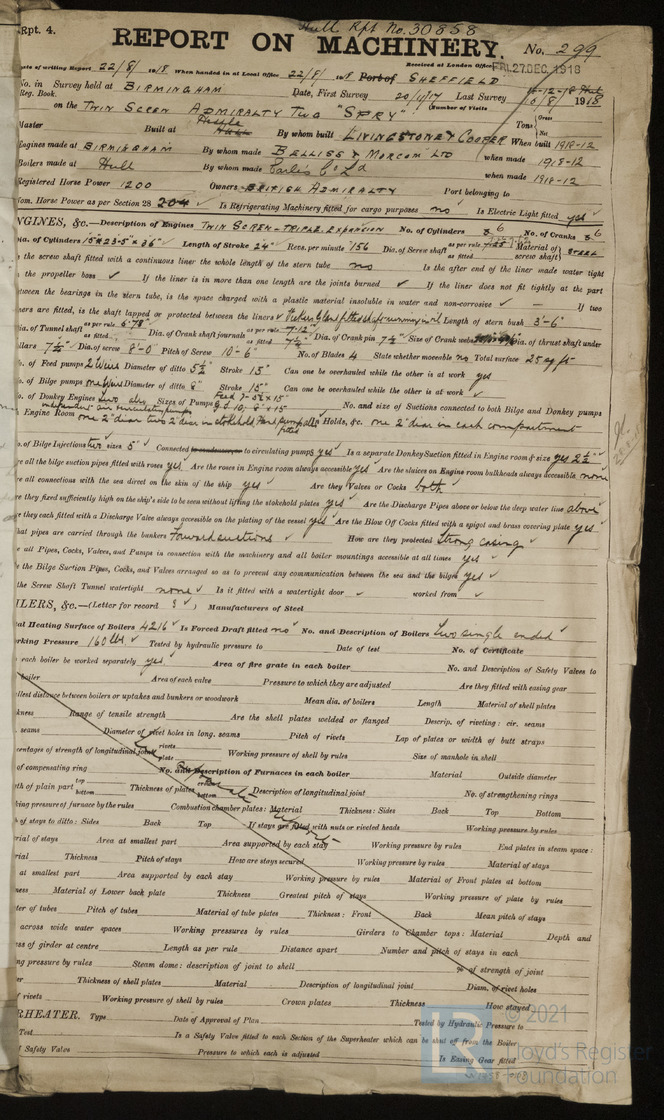 Rpt. 4.
Hull Rpt No. 30858
REPORT ON MACHINERY. No. 299
Date of writing Report 22/8/1918 When handed in at Local Office 22/8/18 Port of SHEFFIELD
Received at London Office FRI. 27 DEC. 1918
No. in Survey held at BIRMINGHAM Date, First Survey 20/11/17 Last Survey 1918
Reg. Book. (Number of Visits
on the TWIN SCREW ADMIRALTY TUG "SPRY" Tons Gross Net
Master Built at Hessle By whom built LIVINGSTONE & COOPER When built 1918-12
Engines made at BIRMINGHAM By whom made BELLISS & MORCOM LTD when made 1918-12
Boilers made at Hull By whom made Earles Co Ld when made 1918-12
Registered Horse Power 1200 Owners BRITISH ADMIRALTY Port belonging to
Nom. Horse Power as per Section 28 204 Is Refrigerating Machinery fitted for cargo purposes no Is Electric Light fitted yes
NGINES, &c.—Description of Engines TWIN SCREW-TRIPLE EXPANSION No. of Cylinders 6 No. of Cranks 6
Dia. of Cylinders 15" × 23.5" × 36" Length of Stroke 24" Revs. per minute 156 Dia. of Screw shaft as per rule as fitted Material of screw shaft STEEL
the screw shaft fitted with a continuous liner the whole length of the stern tube no Is the after end of the liner made water tight
the propeller boss If the liner is in more than one length are the joints burned If the liner does not fit tightly at the part
between the bearings in the stern tube, is the space charged with a plastic material insoluble in water and non-corrosive — If two
ners are fitted, is the shaft lapped or protected between the liners Length of stern bush 3'-6"
Dia. of Tunnel shaft as per rule 6.78" as fitted Dia. of Crank shaft journals as per rule 7.12" as fitted 7½" Dia. of Crank pin 7½" Size of Crank webs Dia. of thrust shaft under
ollars 7½" Dia. of screw 8'-0" Pitch of Screw 10-6" No. of Blades 4 State whether moveable no Total surface 25 sq ft
No. of Feed pumps 2 Weirs Diameter of ditto 5½" Stroke 15" Can one be overhauled while the other is at work yes
No. of Bilge pumps one Weirs Diameter of ditto 8" Stroke 15" Can one be overhauled while the other is at work
No. of Donkey Engines Two also Sizes of Pumps No. and size of Suctions connected to both Bilge and Donkey pumps
Engine Room one 2" diar two 2" diar in stokehold, Hand pump also fitted Holds, &c. one 2" diar in each compartment
No. of Bilge Injections two sizes 5" Connected to circulating pumps yes Is a separate Donkey Suction fitted in Engine room & size yes 2½"
re all the bilge suction pipes fitted with roses yes Are the roses in Engine room always accessible yes Are the sluices on Engine room bulkheads always accessible none
re all connections with the sea direct on the skin of the ship yes Are they Valves or Cocks both
re they fixed sufficiently high on the ship's side to be seen without lifting the stokehold plates yes Are the Discharge Pipes above or below the deep water line above
re they each fitted with a Discharge Valve always accessible on the plating of the vessel yes Are the Blow Off Cocks fitted with a spigot and brass covering plate yes
hat pipes are carried through the bunkers Forward suctions How are they protected Strong casing
re all Pipes, Cocks, Valves, and Pumps in connection with the machinery and all boiler mountings accessible at all times yes
e the Bilge Suction Pipes, Cocks, and Valves arranged so as to prevent any communication between the sea and the bilges yes
the Screw Shaft Tunnel watertight none Is it fitted with a watertight door worked from
ILERS, &c.—(Letter for record S) Manufacturers of Steel
al Heating Surface of Boilers 4216 Is Forced Draft fitted no No. and Description of Boilers Two single ended
orking Pressure 160 lbs Tested by hydraulic pressure to Date of test No. of Certificate
each boiler be worked separately yes Area of fire grate in each boiler No. and Description of Safety Valves to
boiler Area of each valve Pressure to which they are adjusted Are they fitted with easing gear
llest distance between boilers or uptakes and bunkers or woodwork Mean dia. of boilers Length Material of shell plates
kness Range of tensile strength Are the shell plates welded or flanged Descrip. of riveting: cir. seams
seams Diameter of rivet holes in long. seams Pitch of rivets Lap of plates or width of butt straps
centages of strength of longitudinal joint rivets plate Working pressure of shell by rules Size of manhole in shell
of compensating ring No. and Description of Furnaces in each boiler Material Outside diameter
th of plain part top bottom Thickness of plates crown bottom Description of longitudinal joint No. of strengthening rings
king pressure of furnace by the rules Combustion chamber plates: Material Thickness: Sides Back Top Bottom
h of stays to ditto: Sides Back Top If stays are fitted with nuts or riveted heads Working pressure by rules
rial of stays Area at smallest part Area supported by each stay Working pressure by rules End plates in steam space:
rial Thickness Pitch of stays How are stays secured Working pressure by rules Material of stays
at smallest part Area supported by each stay Working pressure by rules Material of Front plates at bottom
ness Material of Lower back plate Thickness Greatest pitch of stays Working pressure of plate by rules
ter of tubes Pitch of tubes Material of tube plates Thickness: Front Back Mean pitch of stays
across wide water spaces Working pressures by rules Girders to Chamber tops: Material Depth and
ss of girder at centre Length as per rule Distance apart Number and pitch of stays in each
ng pressure by rules Steam dome: description of joint to shell % of strength of joint
er Thickness of shell plates Material Description of longitudinal joint Diam. of rivet holes
f rivets Working pressure of shell by rules Crown plates Thickness How stayed
RHEATER. Type Date of Approval of Plan Tested by Hydraulic Pressure to
Test Is a Safety Valve fitted to each Section of the Superheater which can be shut off from the Boiler
f Safety Valve Pressure to which each is adjusted Is Easing Gear fitted
© 2021
Lloyd's Register
Foundation